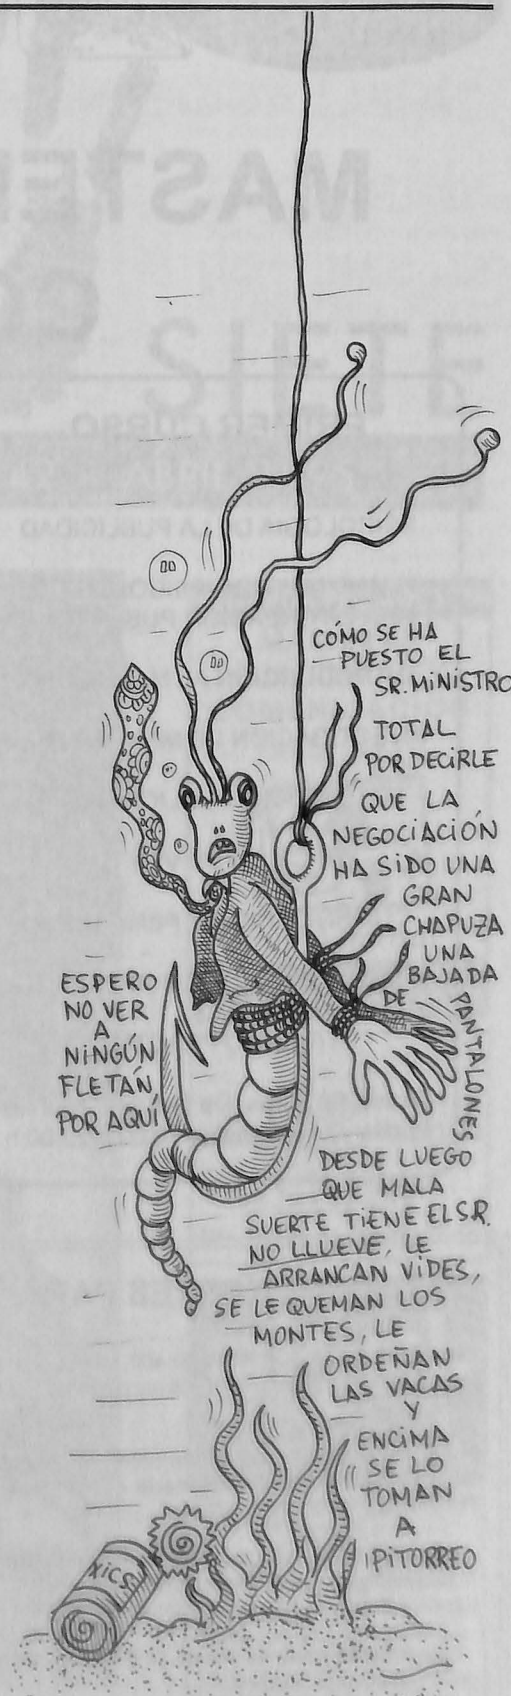 MASTER
CÓMO SE HA
PUESTO EL
SR. MINISTRO
TOTAL
POR DECIRLE
QUE LA
NEGOCIACIÓN
HA SIDO UNA
GRAN
CHAPUZA
UNA
BAJADA
DE
PANTALONES
ESPERO
NO VER
A
NINGÚN
FLETÁN
POR AQUÍ
DESDE LUEGO
QUE MALA
SUERTE TIENE EL SR.
NO LLUEVE, LE
ARRANCAN VIDES,
SE LE QUEMAN LOS
MONTES, LE
ORDEÑAN
LAS VACAS
Y
ENCIMA
SE LO
TOMAN
A
PITORREO
XICS